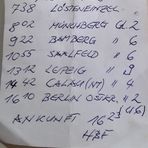 738 LÖSTENEITZEL
802 MÜNNBERG Gl. 2
922 BAMBERG " 6
1055 SAALFELD " 6
1312 LEIPZIG " 9
1442 CALAU (NT) " 4
1610 BERLIN OSTBR. " 2
(416)
ANKUNFT 1623
HBF